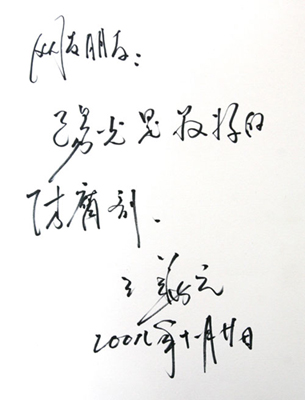 网友朋友：
陽光是最好的
防腐剂.
2008年十一月廿日